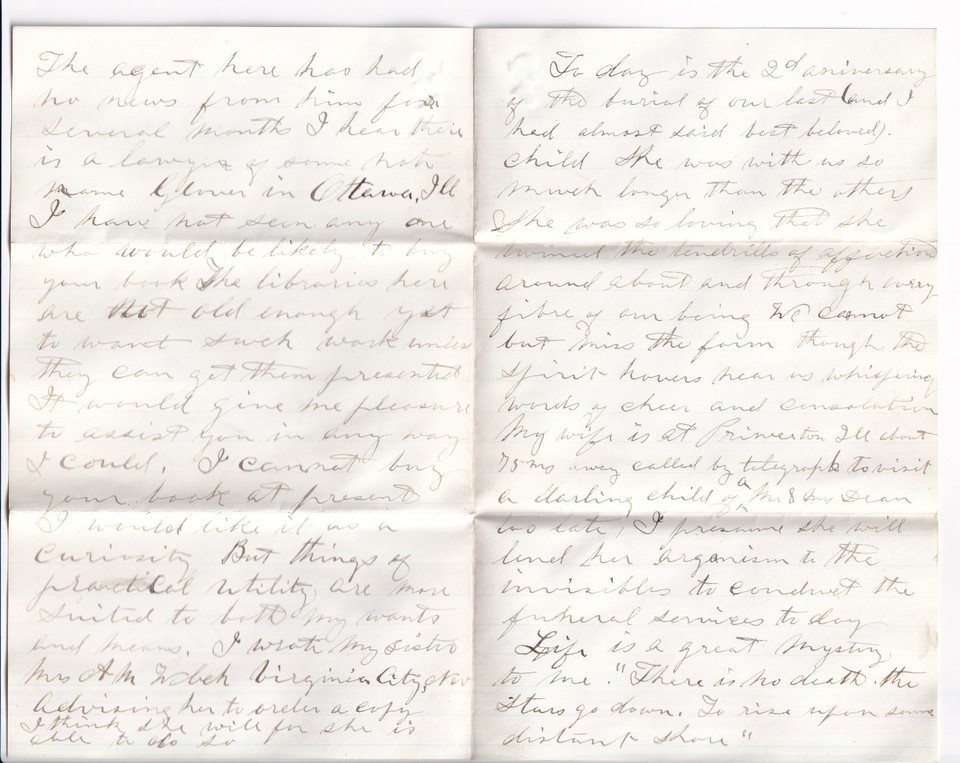 The agent here has had
no news from him for
several months I hear there
is a lawyer of some note
name Glover in Ottawa, Ill
I have not seen any one
who would be likely to buy
your book The libraries here
are not old enough yet
to want such work unless
they can get them presented
It would give me pleasure
to assist you in any way
I could. I cannot buy
your book at present
I would like it as a
curiosity But things of
practical utility are more
suited to both my wants
and means. I wrote my sister
Mrs A M Virginia City, Nev
advising her to order a copy
I think she will for she is
able to do so
To day is the 2d aniversary
of the burial of our last (and I
had almost said best beloved).
child She was with us so
much longer than the others
She was so loving that she
twined the tendrills of affection
around about and through every
fibre of our being We cannot
but miss the form though the
spirit hovers near us whispering
words of cheer and consolation
My wife is at Princeton Ill about
75 ms away called by telegraph to visit
a darling child of a Mr & Mrs Dean
too late, I presume she will
lend her organism to the
invisibles to conduct the
funeral services to day
Life is a great mystery
to me. "There is no death. the
Stars go down. To rise upon some
distant shore"